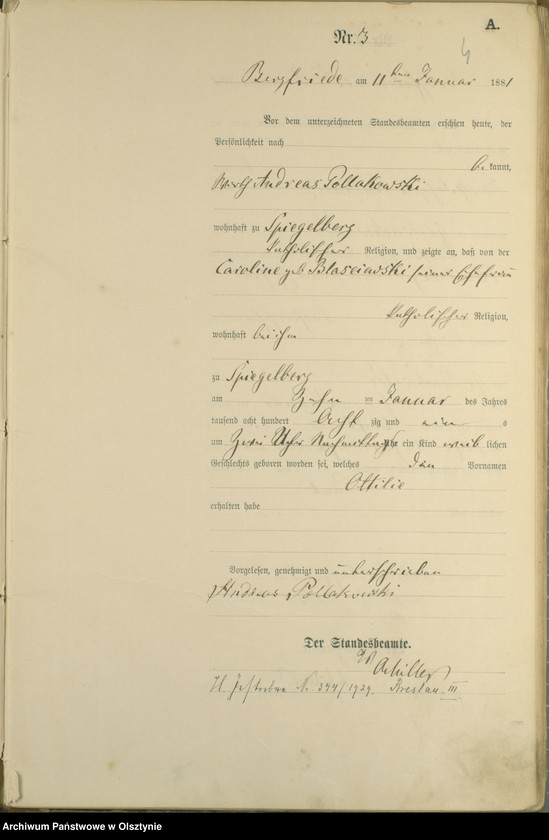 A.
Nr. 3
4
Bergfriede am 11ten Januar 1881
Vor dem unterzeichneten Standesbeamten erschien heute, der
Persönlichkeit nach
bekannt,
Andreas Pollakowski
wohnhaft zu Spiegelberg
katholischer Religion, und zeigte an, daß von der
Caroline geb Blaseiawski seiner Ehefrau
katholischer Religion,
wohnhaft bei ihm
zu Spiegelberg
am Zehn ten Januar des Jahres
tausend acht hundert Acht zig und ein s
um Zwei Uhr Nachmittags ein Kind weib lichen
Geschlechts geboren worden sei, welches den Vornamen
Ottilie
erhalten habe
Vorgelesen, genehmigt und unterschrieben
Andreas Pollakowski
Der Standesbeamte.
Achilles
H. gestorben N. 344/1929. Breslau III
Archiwum Państwowe w Olsztynie